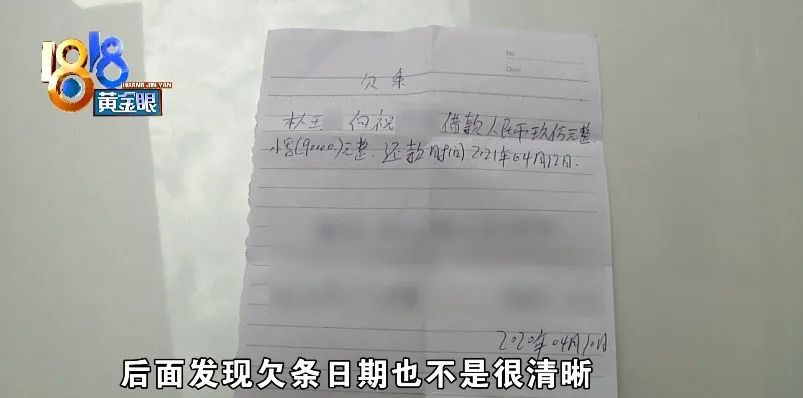 1818
HUANG JIN YAN
黄金眼
No.
Date
欠条
本人王 向祝 借款人民币玖仟元整.
小写(9000.)元整.还款时间2021年04月12日.
2020年04月10日.
后面发现欠条日期也不是很清晰